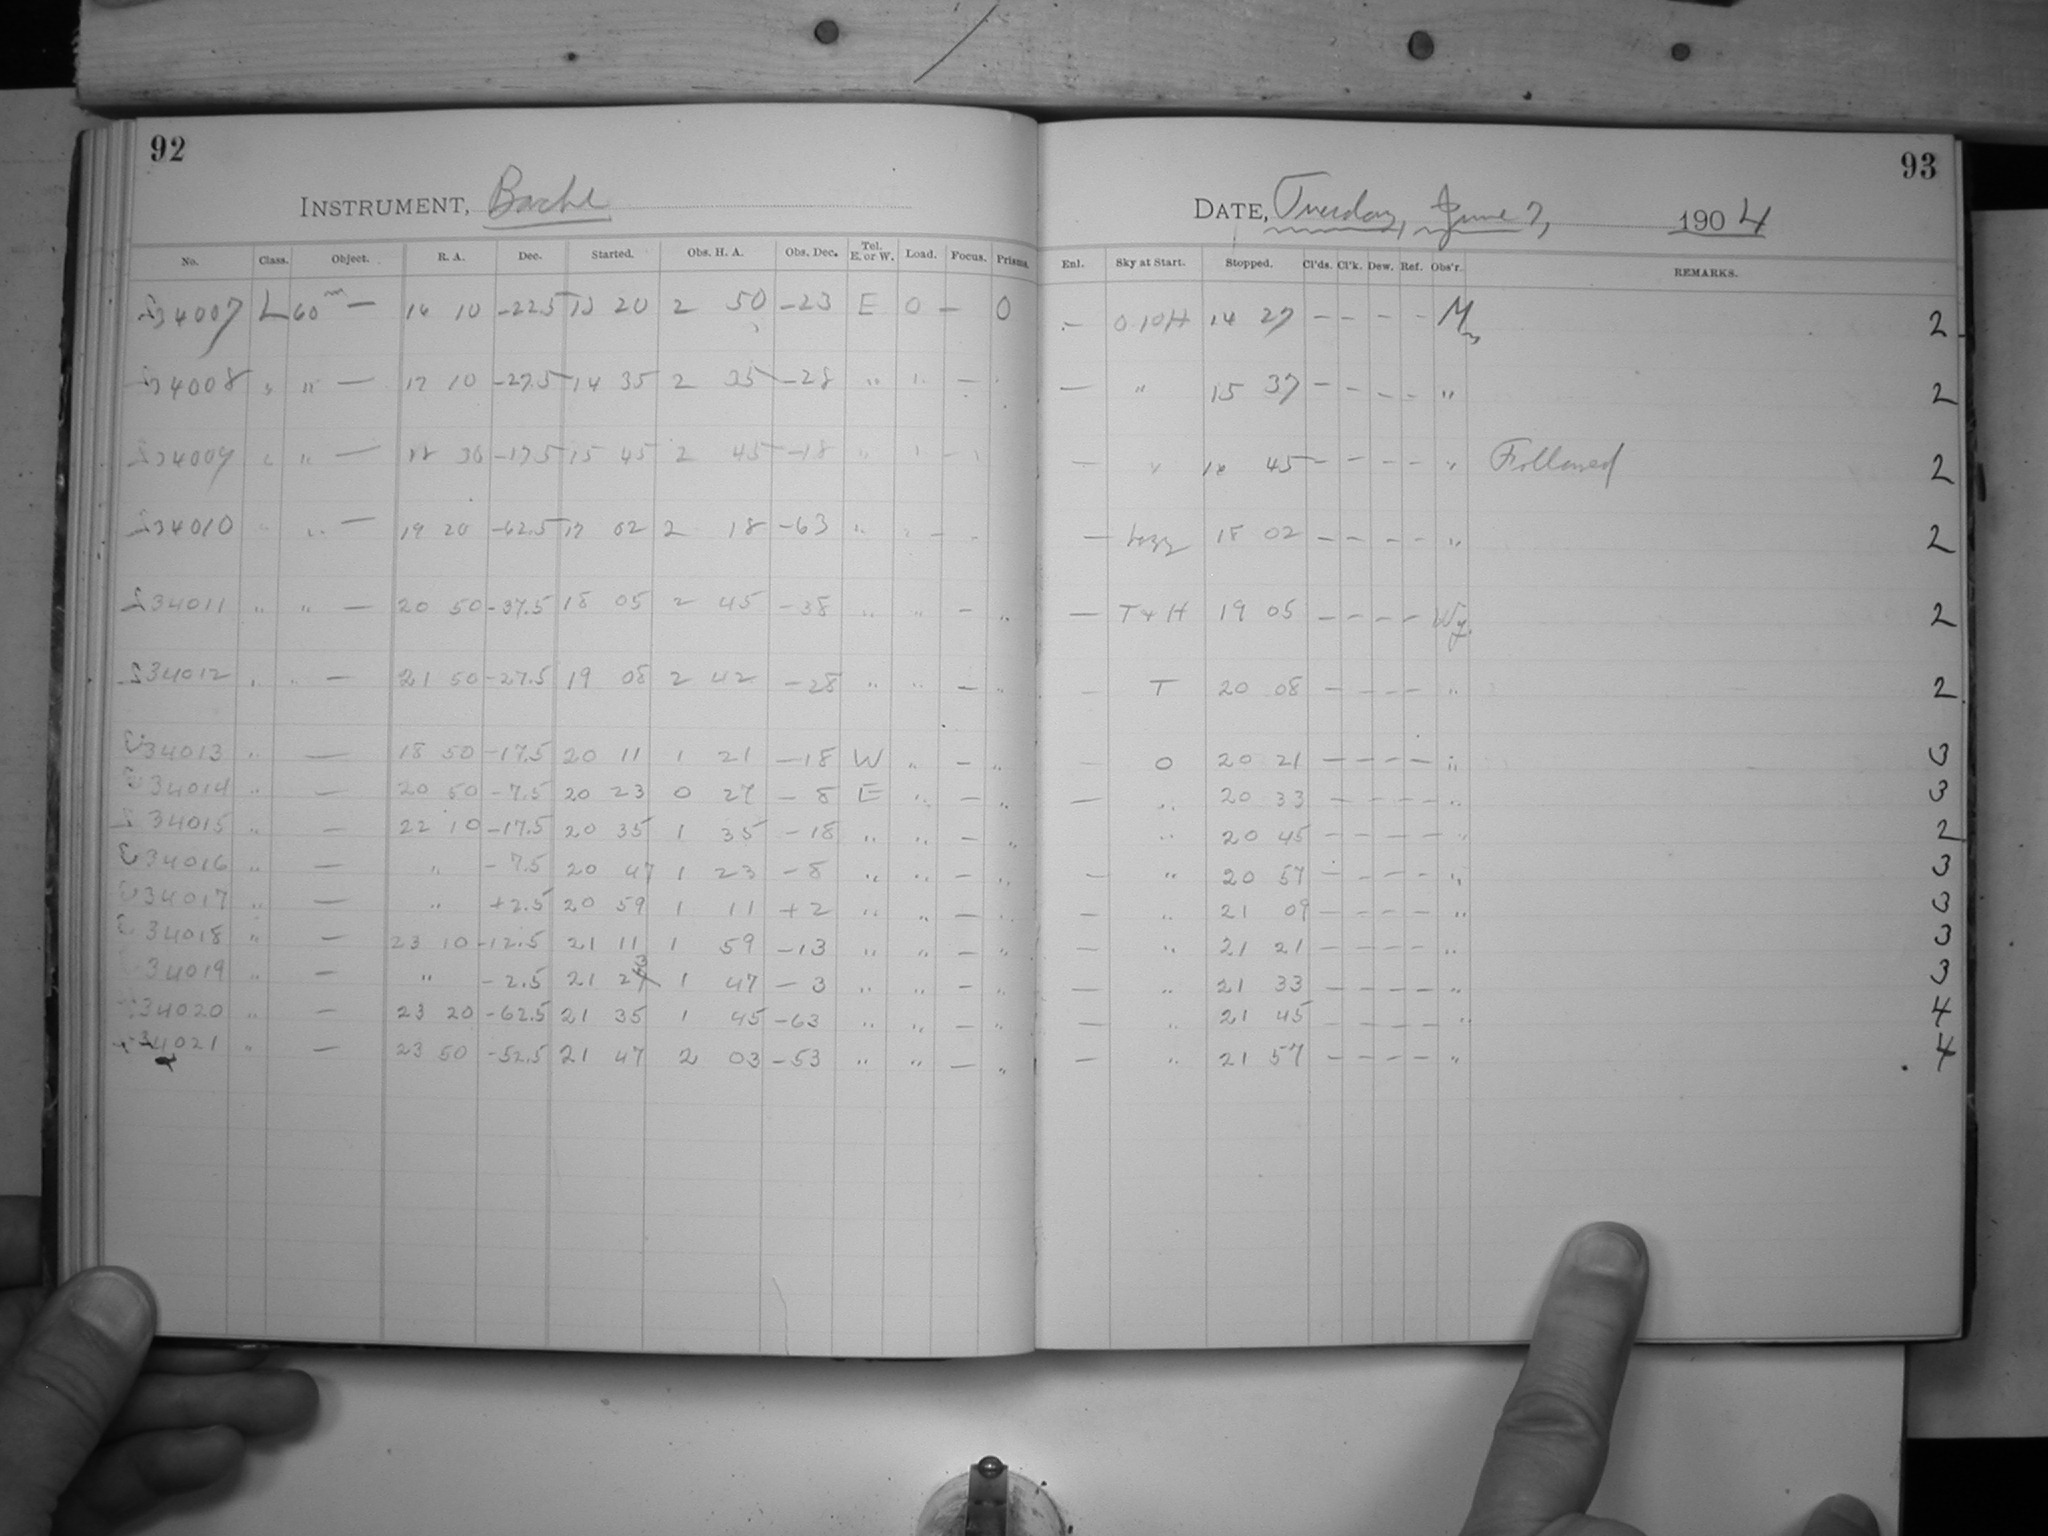 92
INSTRUMENT, Bache
No. Class. Object. R. A. Dec. Started. Obs. H. A. Obs. Dec. Tel. E. or W. Load. Focus. Prisms.
34007 L 60 m — 16 10 -22.5 13 20 2 50 -23 E 0 — 0
34008 " " — 17 10 -27.5 14 35 2 35 -28 " " — "
34009 " " — 18 30 -17.5 15 45 2 45 -18 " " — "
34010 " " — 19 20 -62.5 17 02 2 18 -63 " " — "
34011 " " — 20 50 -37.5 18 05 2 45 -38 " " — "
34012 " " — 21 50 -27.5 19 08 2 42 -28 " " — "
34013 " — 18 50 -17.5 20 11 1 21 -18 W " — "
34014 " — 20 50 -7.5 20 23 0 27 -8 E " — "
34015 " — 22 10 -17.5 20 35 1 35 -18 " " — "
34016 " — " -7.5 20 47 1 23 -8 " " — "
34017 " — " +2.5 20 59 1 11 +2 " " — "
34018 " — 23 10 -12.5 21 11 1 59 -13 " " — "
34019 " — " -2.5 21 23 1 47 -3 " " — "
34020 " — 23 20 -62.5 21 35 1 45 -63 " " — "
34021 " — 23 50 -52.5 21 47 2 03 -53 " " — "
93
DATE, Tuesday, June 7, 1904
Enl. Sky at Start. Stopped. Cl'ds. Cl'k. Dew. Ref. Obs'r. REMARKS.
— 0.10H 14 27 — — — — M 2
— " 15 37 — — — — " 2
— " 16 45 — — — — " Followed 2
— hazy 18 02 — — — — " 2
— T & H 19 05 — — — — Wy. 2
— T 20 08 — — — — " 2
— O 20 21 — — — — " 3
— " 20 33 — — — — " 3
" 20 45 — — — — " 2
— " 20 57 — — — — " 3
— " 21 09 — — — — " 3
— " 21 21 — — — — " 3
— " 21 33 — — — — " 3
— " 21 45 — — — — " 4
— " 21 57 — — — — " 4